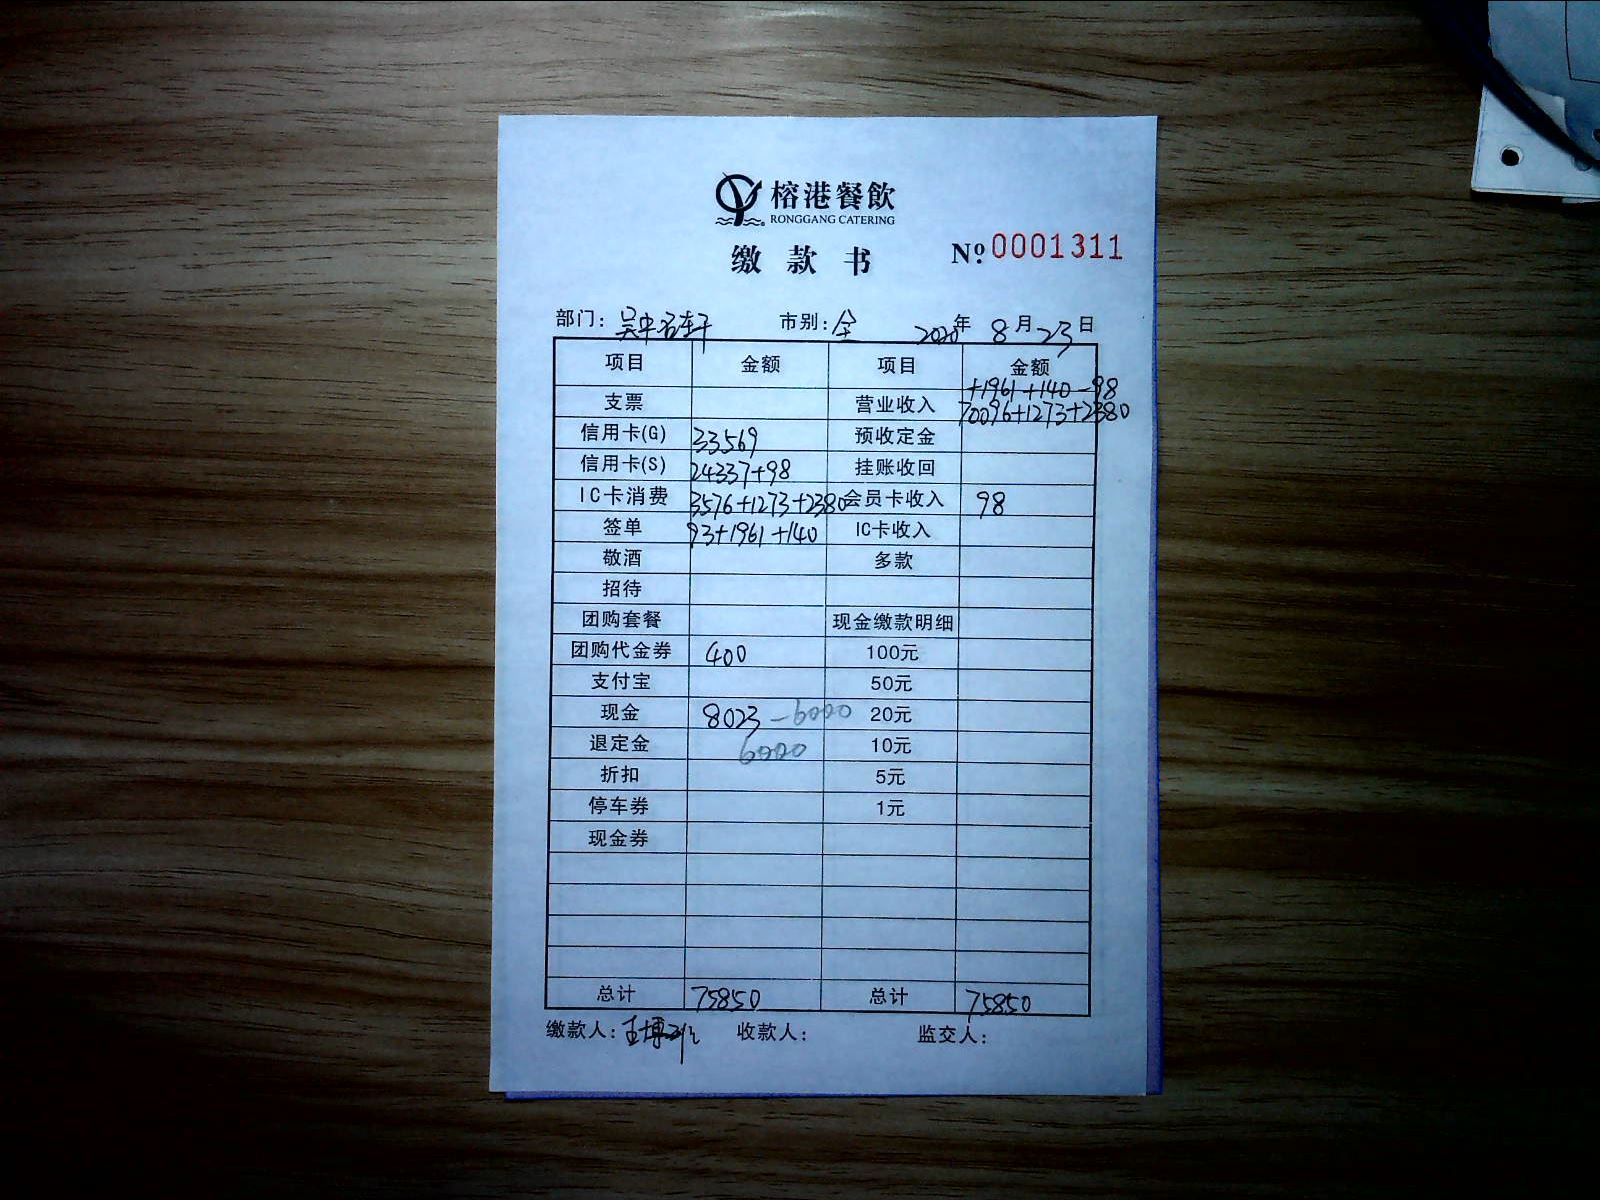 榕港餐飲
RONGGANG CATERING
缴款书 №:0001311
部门:吴中名轩 市别:全 2020年8月23日
项目 金额 项目 金额
+1961+140-98
支票 营业收入 70096+1273+2380
信用卡(G) 33569 预收定金
信用卡(S) 24337+98 挂账收回
IC卡消费 3576+1273+2380 会员卡收入 98
签单 93+1961+140 IC卡收入
敬酒 多款
招待
团购套餐 现金缴款明细
团购代金券 400 100元
支付宝 50元
现金 8023-6000 20元
退定金 6000 10元
折扣 5元
停车券 1元
现金券
总计 75850 总计 75850
缴款人:王博 收款人: 监交人: